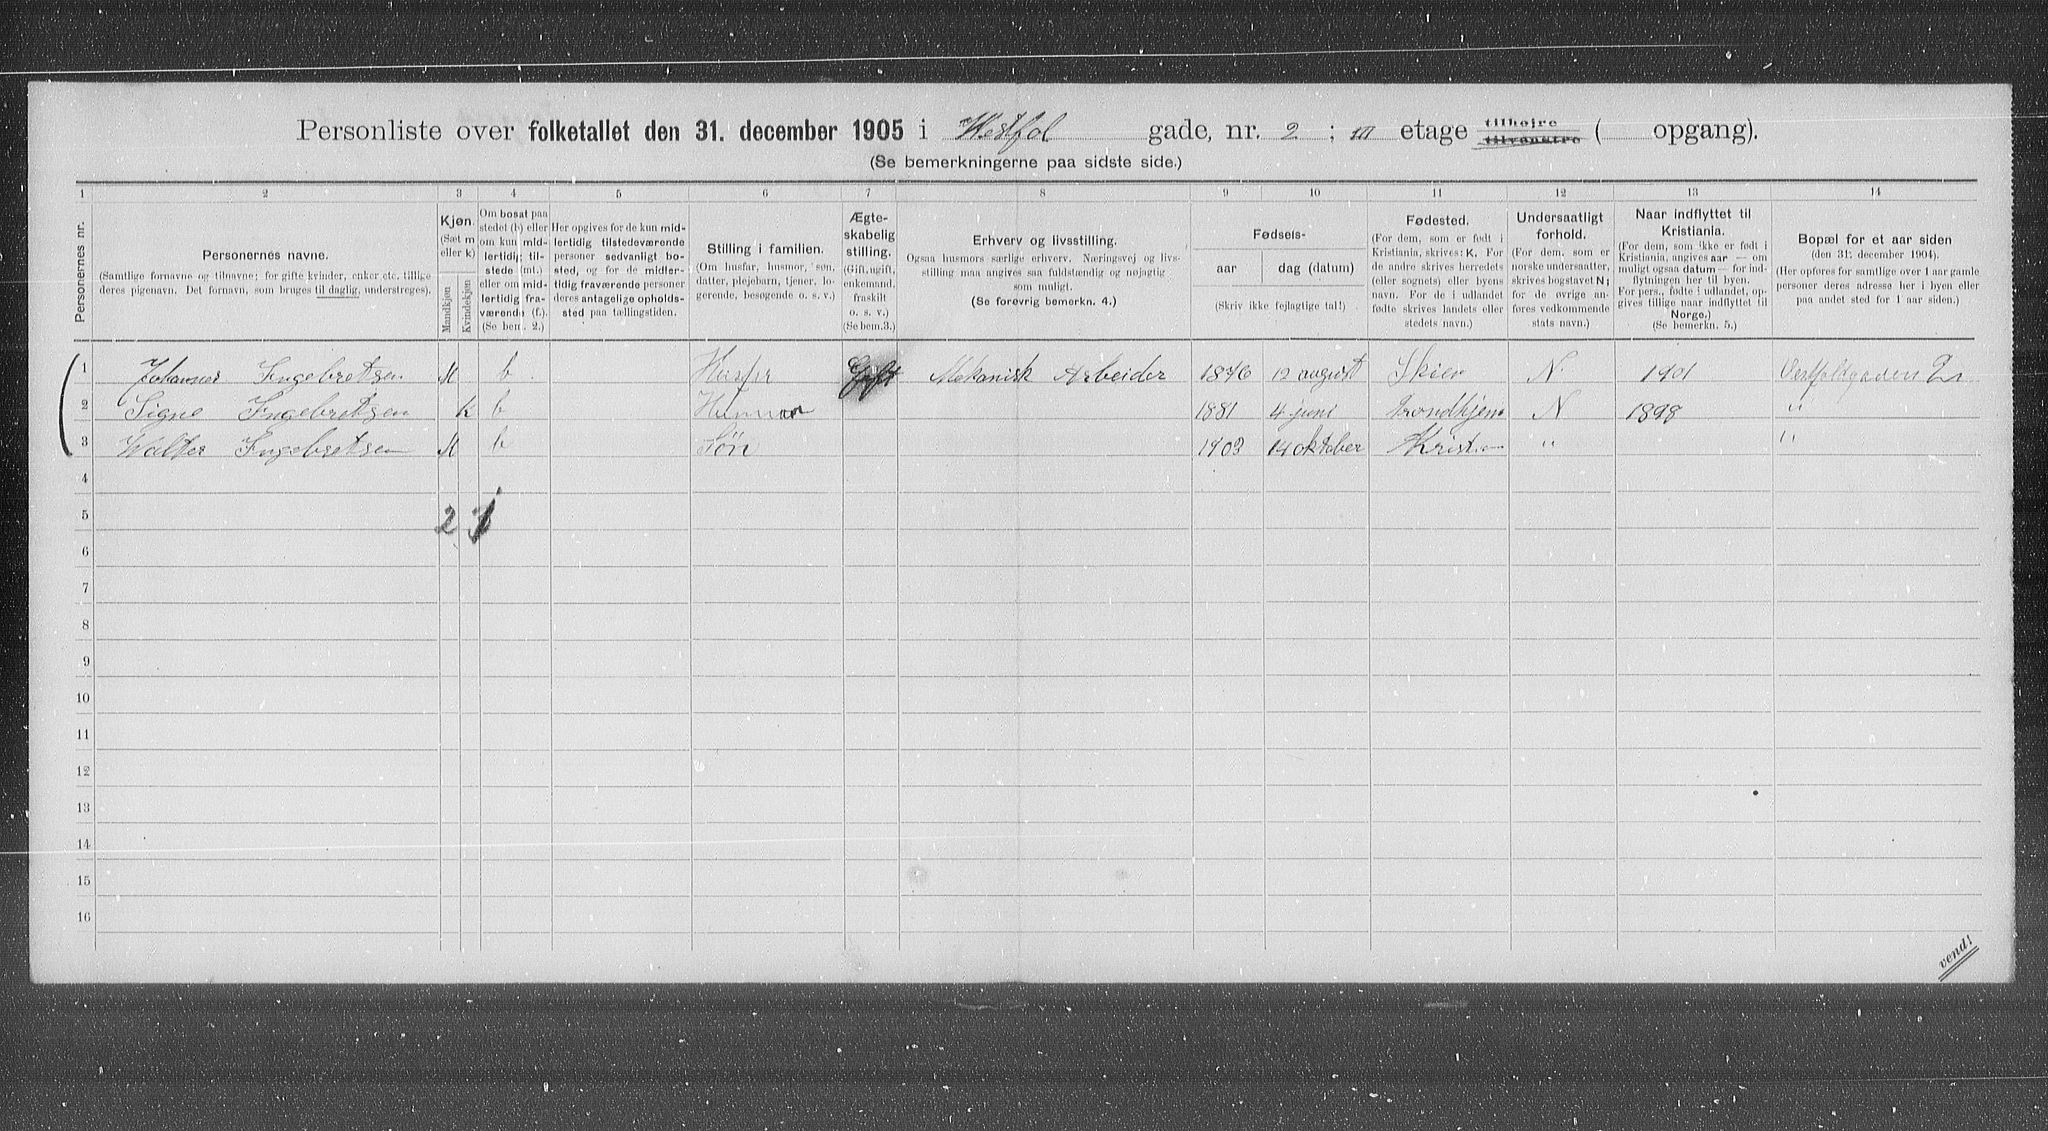 Personliste over folketallet den 31. december 1905 i Westfol gade, nr. 2 ; III etage tilhøjre tilvenstre ( opgang).
(Se bemerkningerne paa sidste side.)
1 2 3 4 5 6 7 8 9 10 11 12 13 14
Personernes nr.
Personernes navne.
(Samtlige fornavne og tilnavne; for gifte kvinder, enker etc. tillige
deres pigenavn. Det fornavn, som bruges til daglig, understreges).
Kjøn.
(Sæt m
eller k)
Mandkjøn
Kvindekjøn
Om bosat paa
stedet (b) eller
om kun mid-
lertidig; til-
stede (mt.)
eller om mid-
lertidig fra-
værende (f.).
(Se bem. 2.)
Her opgives for de kun mid-
lertidig tilstedeværende
personer sedvanligt bo-
sted, og for de midler-
tidig fraværende personer
deres antagelige opholds-
sted paa tællingstiden.
Stilling i familien.
(Om husfar, husmor, søn,
datter, plejebarn, tjener, lo-
gerende, besøgende o. s. v.)
Ægte-
skabelig
stilling.
(Gift, ugift,
enkemand,
fraskilt
o. s. v.)
(Se bem. 3.)
Erhverv og livsstilling.
Ogsaa husmors særlige erhverv. Næringsvej og livs-
stilling maa angives saa fuldstændig og nøjagtig
som muligt.
(Se forøvrig bemerkn. 4.)
Fødsels-
aar
dag (datum)
(Skriv ikke fejlagtige tal!)
Fødested.
(For dem, som er født i
Kristiania, skrives: K. For
de andre skrives herredets
(eller sognets) eller byens
navn. For de i udlandet
fødte skrives landets eller
stedets navn.)
Undersaatligt
forhold.
(For dem, som er
norske undersaatter,
skrives bogstavet N;
for de øvrige an-
føres vedkommende
stats navn.)
Naar indflyttet til
Kristiania.
(For dem, som ikke er født i
Kristiania, angives aar — om
muligt ogsaa datum — for ind-
flytningen her til byen.
For pers., fødte i udlandet, op-
gives tillige naar indflyttet til
Norge.)
(Se bemerkn. 5.)
Bopæl for et aar siden
(den 31. december 1904).
(Her opføres for samtlige over 1 aar gamle
personer deres adresse her i byen eller
paa andet sted for 1 aar siden.)
1 Johannes Ingebretsen M b Husfar Gift Mekanisk Arbeider 1876 12 august Skien N 1901 Vestfoldgaden 2
2 Signe Ingebretsen K b Husmor 1881 4 juni Trondhjem N 1898 "
3 Walter Ingebretsen M b Søn 1903 14 oktober Kristian " "
4
5 2 1
6
7
8
9
10
11
12
13
14
15
16
vend!